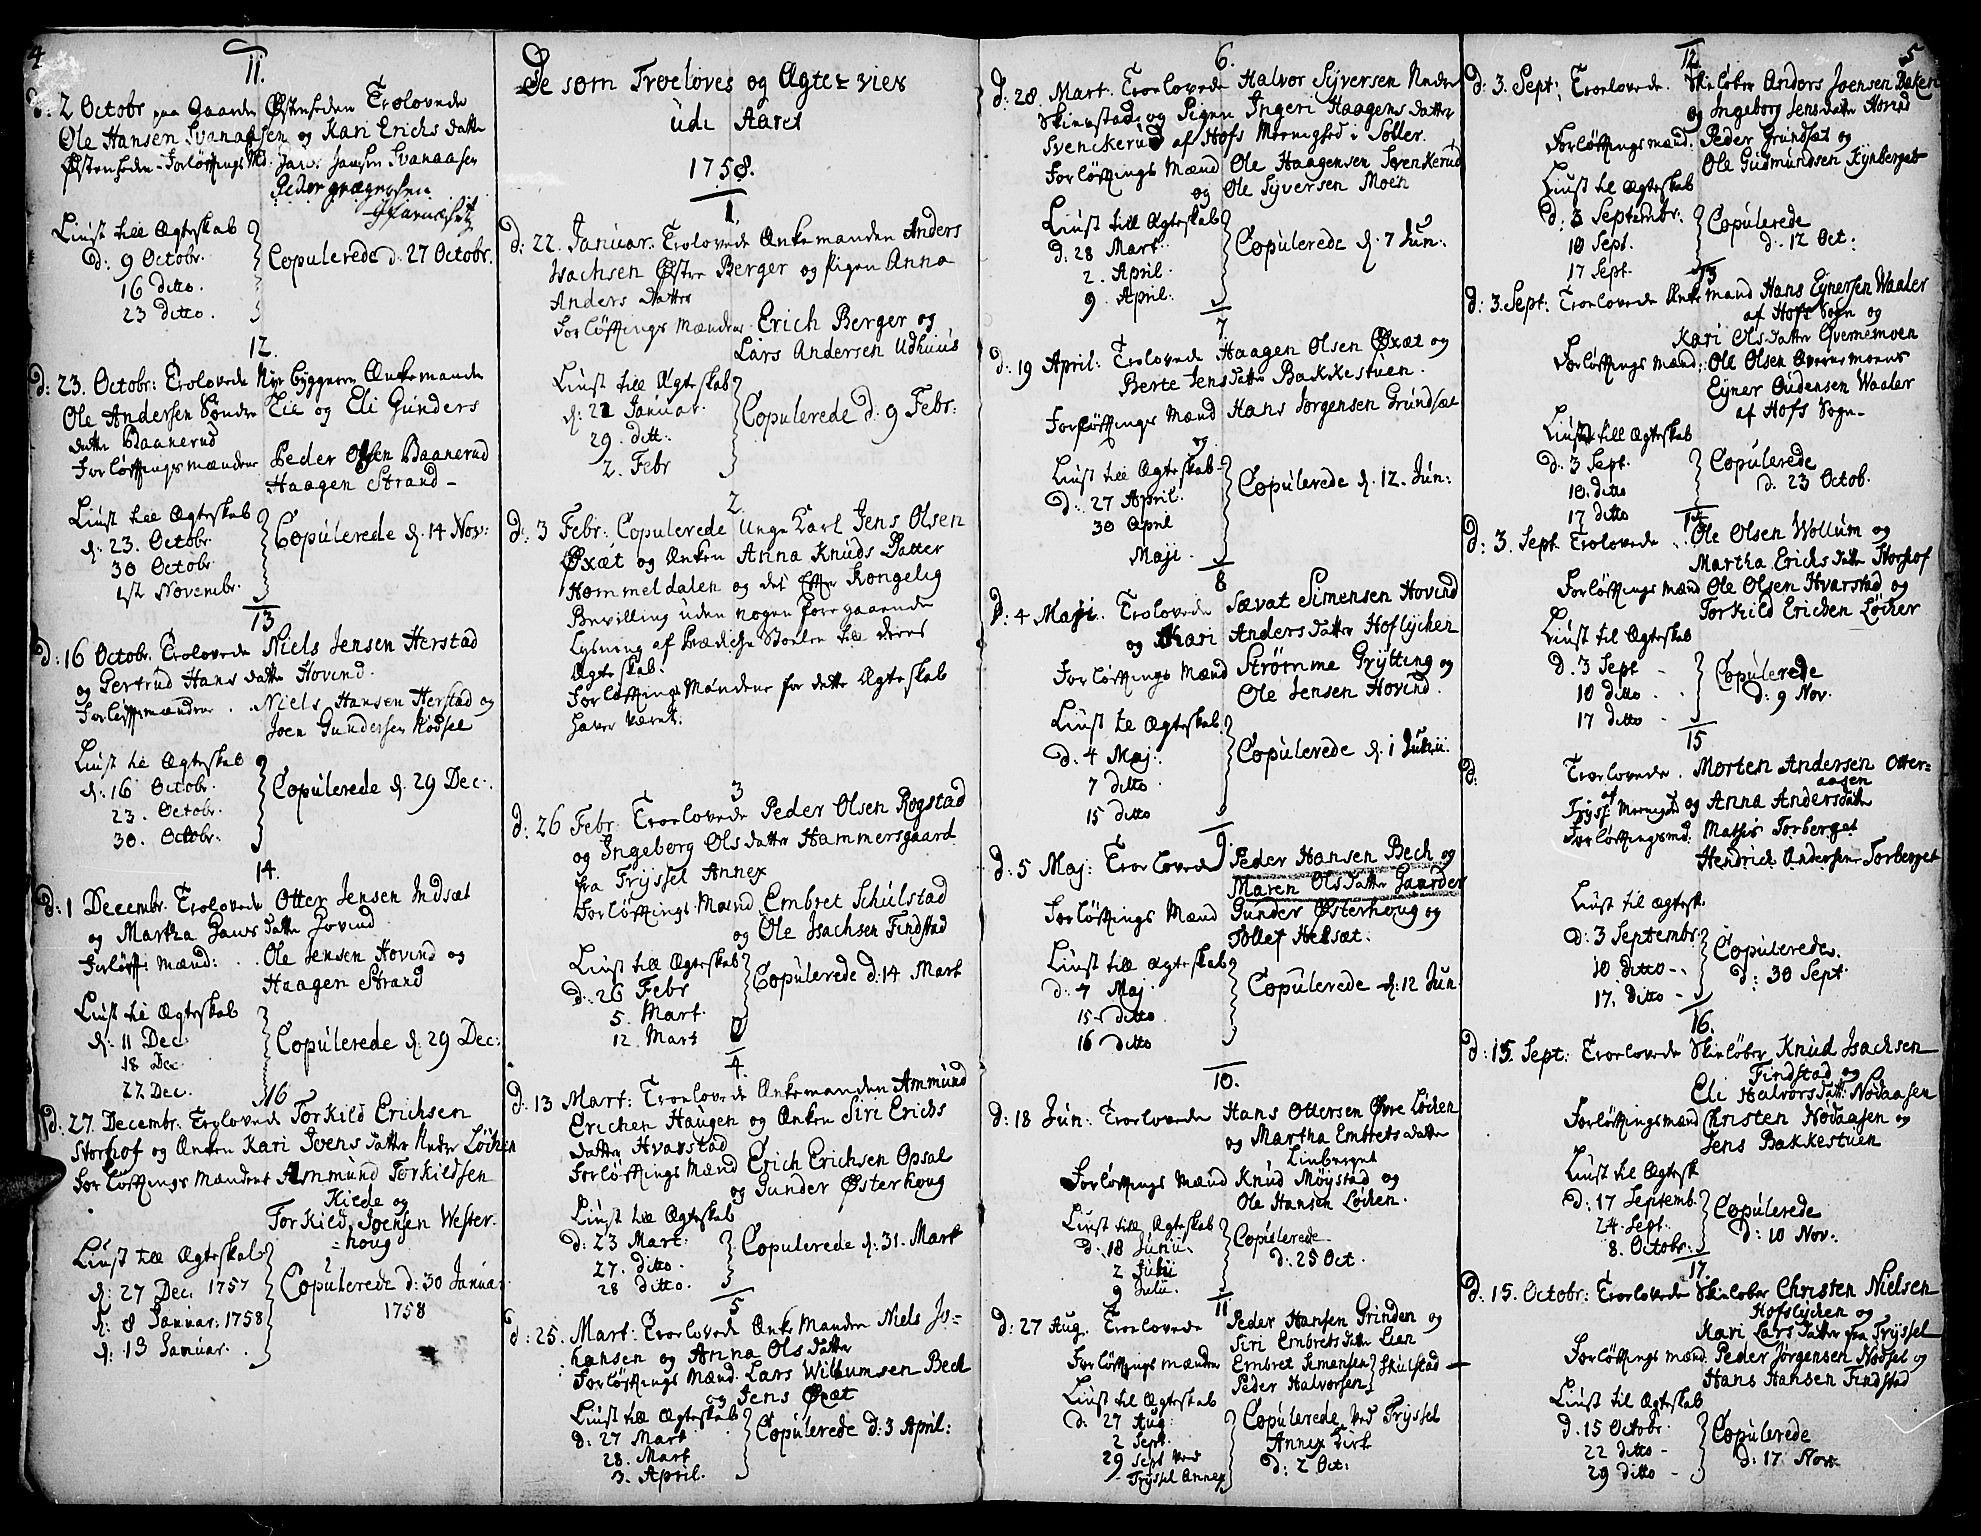 4
11.
d: 2 Octobr paa Gaarden Østenheden Trolovede
Ole Hansen Svanaasen og Kari Erichs datter
Østenheden - Forløftings Md. Jansen Svanaasen
Peder
Liust till Ægteskab
d: 9 Octobr.
16 ditto.
23 ditto.
Copulerede d: 27 Octobr.
12.
d: 23. Octobr: Trolovede Nye byggeren Enkemanden
Ole Andersen Sønder Lie og Eli Gunders
datter Baanerud
Forløftings mændene Peder Olsen Baanerud
Haagen Strand
Liust till Ægteskab
d: 23. Octobr
30 Octobr
1st Novembr.
Copulerede d. 14 Nov:
13
d: 16 Octobr. Trolovede Niels Jensen Herstad
og Gertrud Hans datter Hovind.
Forløftsmændene. Niels Hansen Herstad og
Joen Gundersen Nødsel
Liust till Ægteskab
d: 16 Octobr.
23. Octobr.
30. Octobr.
Copulerede d. 29 Dec:
14.
d: 1 Decembr. Trolovede Otter Jensen Indsæt
og Martha Hans datter Hovind
Forløft: mænd: Ole Jensen Hovind og
Haagen Strand
Liust till Ægteskab
d: 11 Dec:
18 Dec
27 Dec.
Copulerede d. 29 Dec:
16
d: 27. Decembr. Trolovede Torkild Erichsen
Storhof og Enken Kari Joens datter Neder Løchen
Forløftings mændene Ammund Torkildsen
Kilde og
Torkild Joensen Wester=
houg
Liust till Ægteskab
d: 27 Dec: 1757
d: 8 Januar: 1758
d: 13 Januar.
Copulerede d: 30 Januar
1758
De som Troeloves og Ægte=vies
udi Aaret
1758.
1
d: 22. Januar. Trolovede Enkemanden Anders
Isachsen Østre Berger og Pigen Anna
Anders datter
Forløftings mændene Erich Berger og
Lars Andersen Udhuus
Liust till Ægteskab
d: 22 Januar.
29. ditt:
2. Febr
Copulerede d: 9 Febr:
2.
d: 3 Febr: Copulerede Unge Karl Jens Olsen
Øxæt og Enken Anna Knuds Datter
Hommeldalen og det Efter Kongelig
Bevilling uden nogen foregaaende
Lysning af Prædiche Stoelen till deres
Ægteskab.
Forløftings Mændene for dette Ægteskab
haver været.
3
d: 26 Febr. Troelovede Peder Olsen Rogstad
og Ingeborg Ols datter Hammersgaard
fra Tryssel Annex
Forløftings Mænd Embret Schulstad
og Ole Isachsen Findstad
Liust till Ægteskab
d: 26 Febr
5. Mart.
12. Mart
Copulerede d: 14 Mart
4.
d: 13 Mart: Troelovede Enkemanden Ammund
Erichen Haugen og Enken Siri Erichs
datter Hvarstad
Forløftings Mænd Erich Erichsen Opsal
og Gunder Østerhoug
Liust till Ægteskab
d: 23 Mart:
27. ditto.
28 ditto.
Copulerede d: 31. Mart
5
d: 25. Mart: Troelovede Enke Manden Niels Jo=
hansen og Anna Ols datter
Forløftings Mænd. Lars Willumsen Bech
og Jens Øxæt
Liust till Ægteskab
d: 27 Mart
28. Mart
3. April.
Copulerede d: 3 April:
6.
d: 28 Mart. Troelovede Halvor Syversen Neder
Skierstad og Pigen Ingeri Haagens datter
Svenckerud af Hofs Menighed i Solløer.
Forløftings Mænd Ole Haagensen Svenkerud
og Ole Syversen Moen
Liust till Ægteskab
d: 28 Mart.
2. April.
9. April.
Copulerede d. 7 Jun:
7.
d: 19 April: Trolovede Haagen Olsen Øxæt og
Berte Jens datter Bakkestuen.
Forløftings Mænd Hans Jørgensen Grundsæt
og
Liust till Ægteskab
d: 27 April.
30 April
Maji.
Copulerede d. 12. Jun:
8
d: 4 Maji. Trolovede Sævat Simensen Hovind
og Kari Anders datter Hoflychen
Forløftings Mænd Strømme Grytting og
Ole Jensen Hovind.
Liust te Ægteskab
d: 4 Maj:
7 ditto
15 ditto
Copulerede d. 1 Julii.
9.
d: 5 Maj: Troelovede Peder Hansen Bech og
Maren Ols datter Gaarder
Forløftings Mænd Gunder Østerhoug og
Tollef Helsæt.
Liust till Ægteskab
d: 7 Maj
15 ditto.
16 ditto
Copulerede d: 12 Jun
10.
d: 18 Jun: Troelovede Hans Ottersen Øvre Løchen
og Martha Embrets datter
Linberget
Forløftings Mænd Knud Møystad og
Ole Hansen Løchen.
Liust till Ægteskab
d: 18 Junii.
2 Julii
9 Julii.
Copulerede
d: 25 Oct.
11
d: 27 Aug. Troelovede Peder Hansen Grinden og
Siri Embrets datter Lian
Forløftings mændene Embret Simensen
Peder Halvorsen } Skulstad
Liust til Ægteskab
d: 27 Aug:
2 Sept.
29 Sept ved
Tryssel Annex
Copulerede ved Tryssel
Annex Kirk
d: 2 Oct:
5
12
d: 3. Sept: Troelovede. Skieløber Anders Joensen Bakken
og Ingeborg Jens datter Hovind
Forløftingsmænd. Peder Grundsæt og
Ole Gudmundsen Kynberget
Liust til Ægteskab
d: 3 Septembr:
10 Sept.
17 Sept.
Copulerede
d: 12 Oct:
13
d: 3. Sept: Troelovede Enke mand Hans Eynersen Waaler
af Hofs Sogn og
Kari Ols datter Qvernemoen
Forløftings mænd: Ole Olsen Qvernemoen
Eyner Oudensen Waaler
af Hofs Sogn
Liust till Ægteskab
d: 3 Sept.
10. ditto
17 ditto
Copulerede
d. 23 Octob.
14
d: 3. Sept Troelovede Ole Olsen Wollum og
Martha Erichs datter Storhof
Forløftings mænd Ole Olsen Hvarstad og
Torkild Erichen Løcher
Liust til Ægteskab
d: 3 Sept
10 ditto
17 ditto
Copulerede
d: 9 Nov.
15
d: Troelovede. Morten Andersen Otter=
aasen
af Tryssl Menighed og Anna Andersdatter
Forløftingsmd. Mathis Torberget
Hendrich Andersen Torberget
Liust til Ægtesk.
d: 3 Septembr
10 ditto
17. ditto
Copulerede.
d: 30 Sept.
16.
d: 15. Sept: Troelovede Skieløber Knud Isachsen
Findstad og
Eli Halvors datt: Nødaasen
Forløftingsmænd Christen Nødaasen og
Jens Bakkestuen
Liust til Ægtesk
d: 17 Septemb.
24. Sept.
8. Octobr:
Copulerede
d: 10 Nov:
17.
d: 15. Octobr: Troelovede Skieløber Christen Nielsen
Hoflychen og
Mari Lars datter fra Tryssel
Forløftings mænd. Peder Jørgensen Nødsel og
Hans Hansen Findstad
Liust til Ægteskab
d: 15 Octobr
22 ditto
29 ditto
Copulerede
d: 17 Nov.